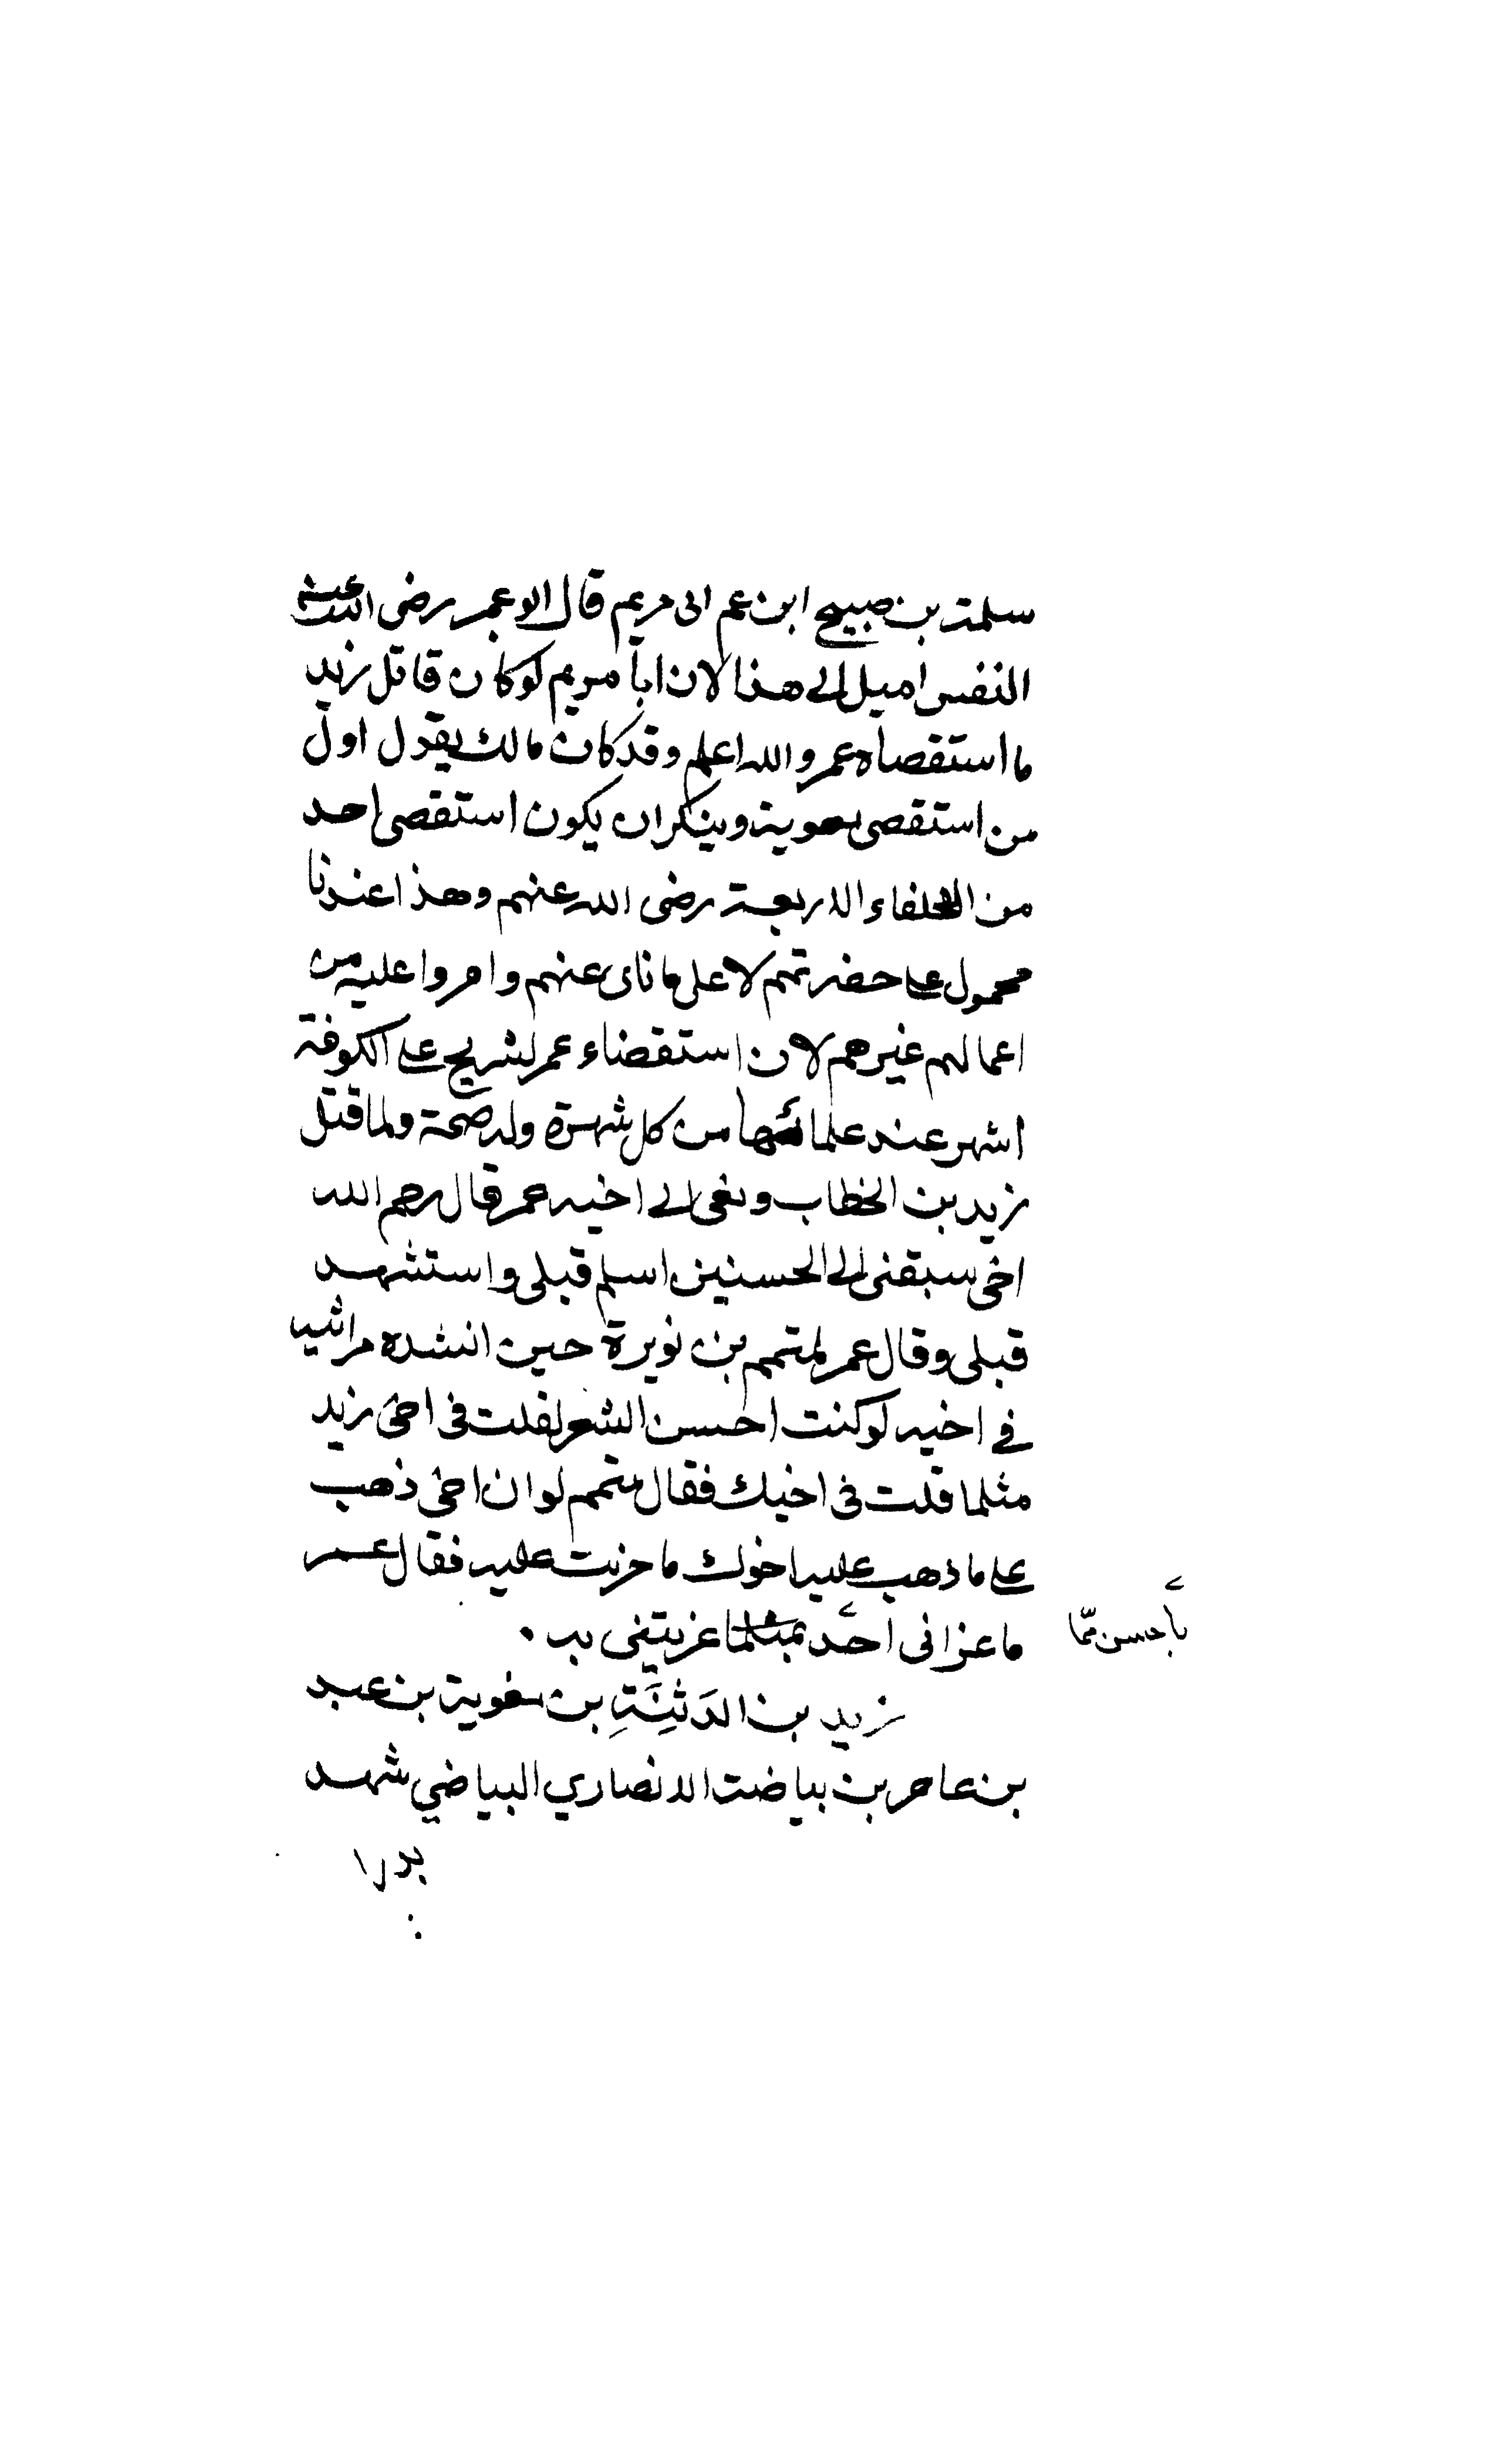 سلمة بن صبيح ابن عم ابى مريم قال ابو عمر رضى الله عنه
النفس اميل الى هذا لان ابا مريم لو كان قاتل زيد
ما استقضاه عمر والله اعلم وقد كان مالك يقول اول
من استقضى معوية وينكر ان يكون استقضى احد
من الخلفاء الاربعة رضى الله عنهم وهذا عندنا
محمول على حضرتهم لا على ما ناى عنهم وامروا عليه من
اعمالهم غيرهم لان استقضاء عمر لشريح على الكوفة
اشهر عند علمائها من كل شهرة وله صحة ولما قتل
زيد بن الخطاب ونعى الى اخيه عمر قال رحم الله
اخى سبقنى الى الحسنيين اسلم قبلى واستشهد
قبلى وقال عمر لمتمم بن نويرة حين انشده مراثيه
فى اخيه لو كنت احسن الشعر لقلت فى اخى زيد
مثلما قلت فى اخيك فقال متمم لو ان اخى ذهب
على ما ذهب عليه اخوك ما حزنت عليه فقال عمر
ما عزانى احد بمثلما عزيتنى به .
بأحسن ممّا
زيد بن الدَثِنَةِ بن معوية بن عبيد
بن عامر بن بياضة الانصاري البياضي شهد
بدرا